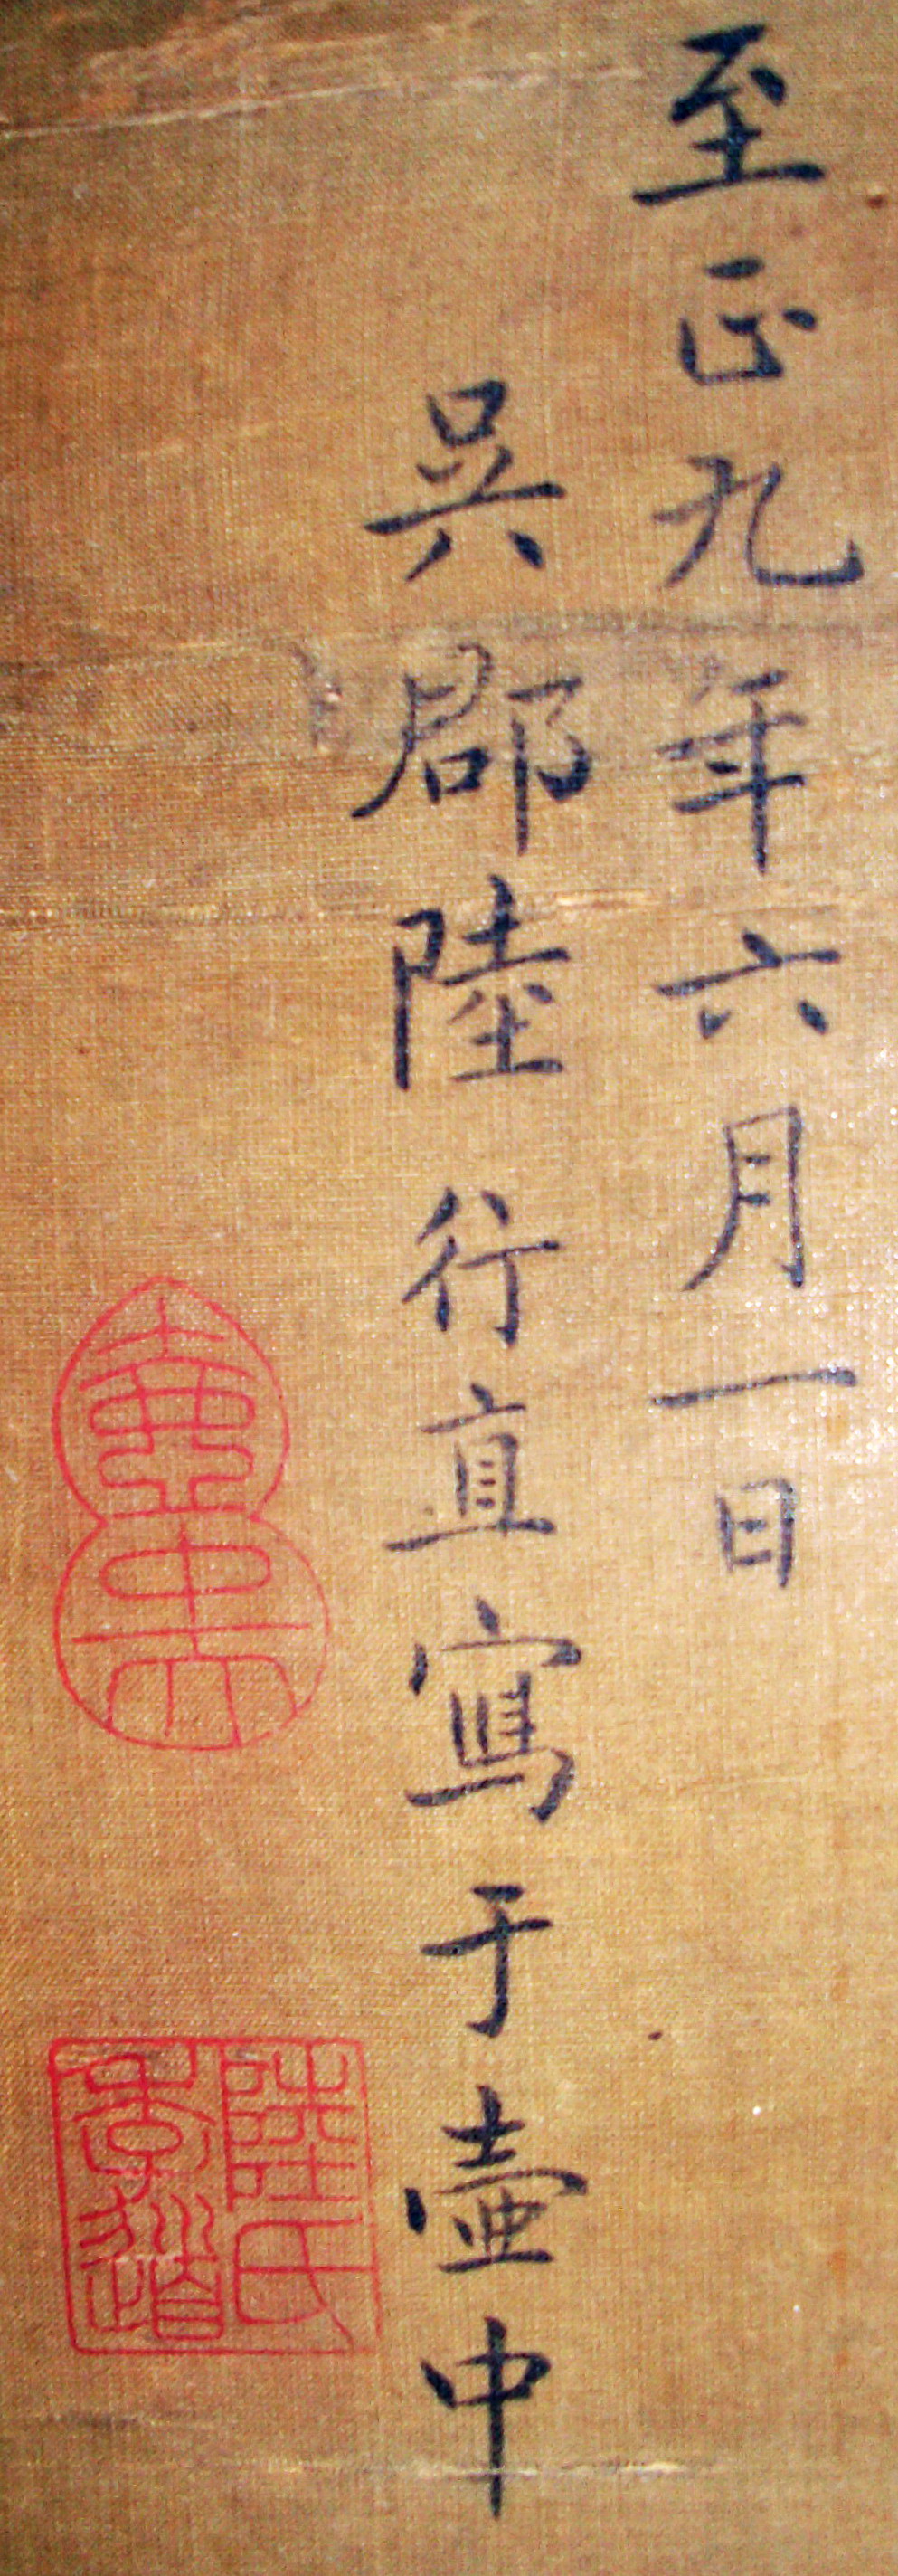 至正九年六月一日
吳郡陸行直寫于壺中
陸氏
季道